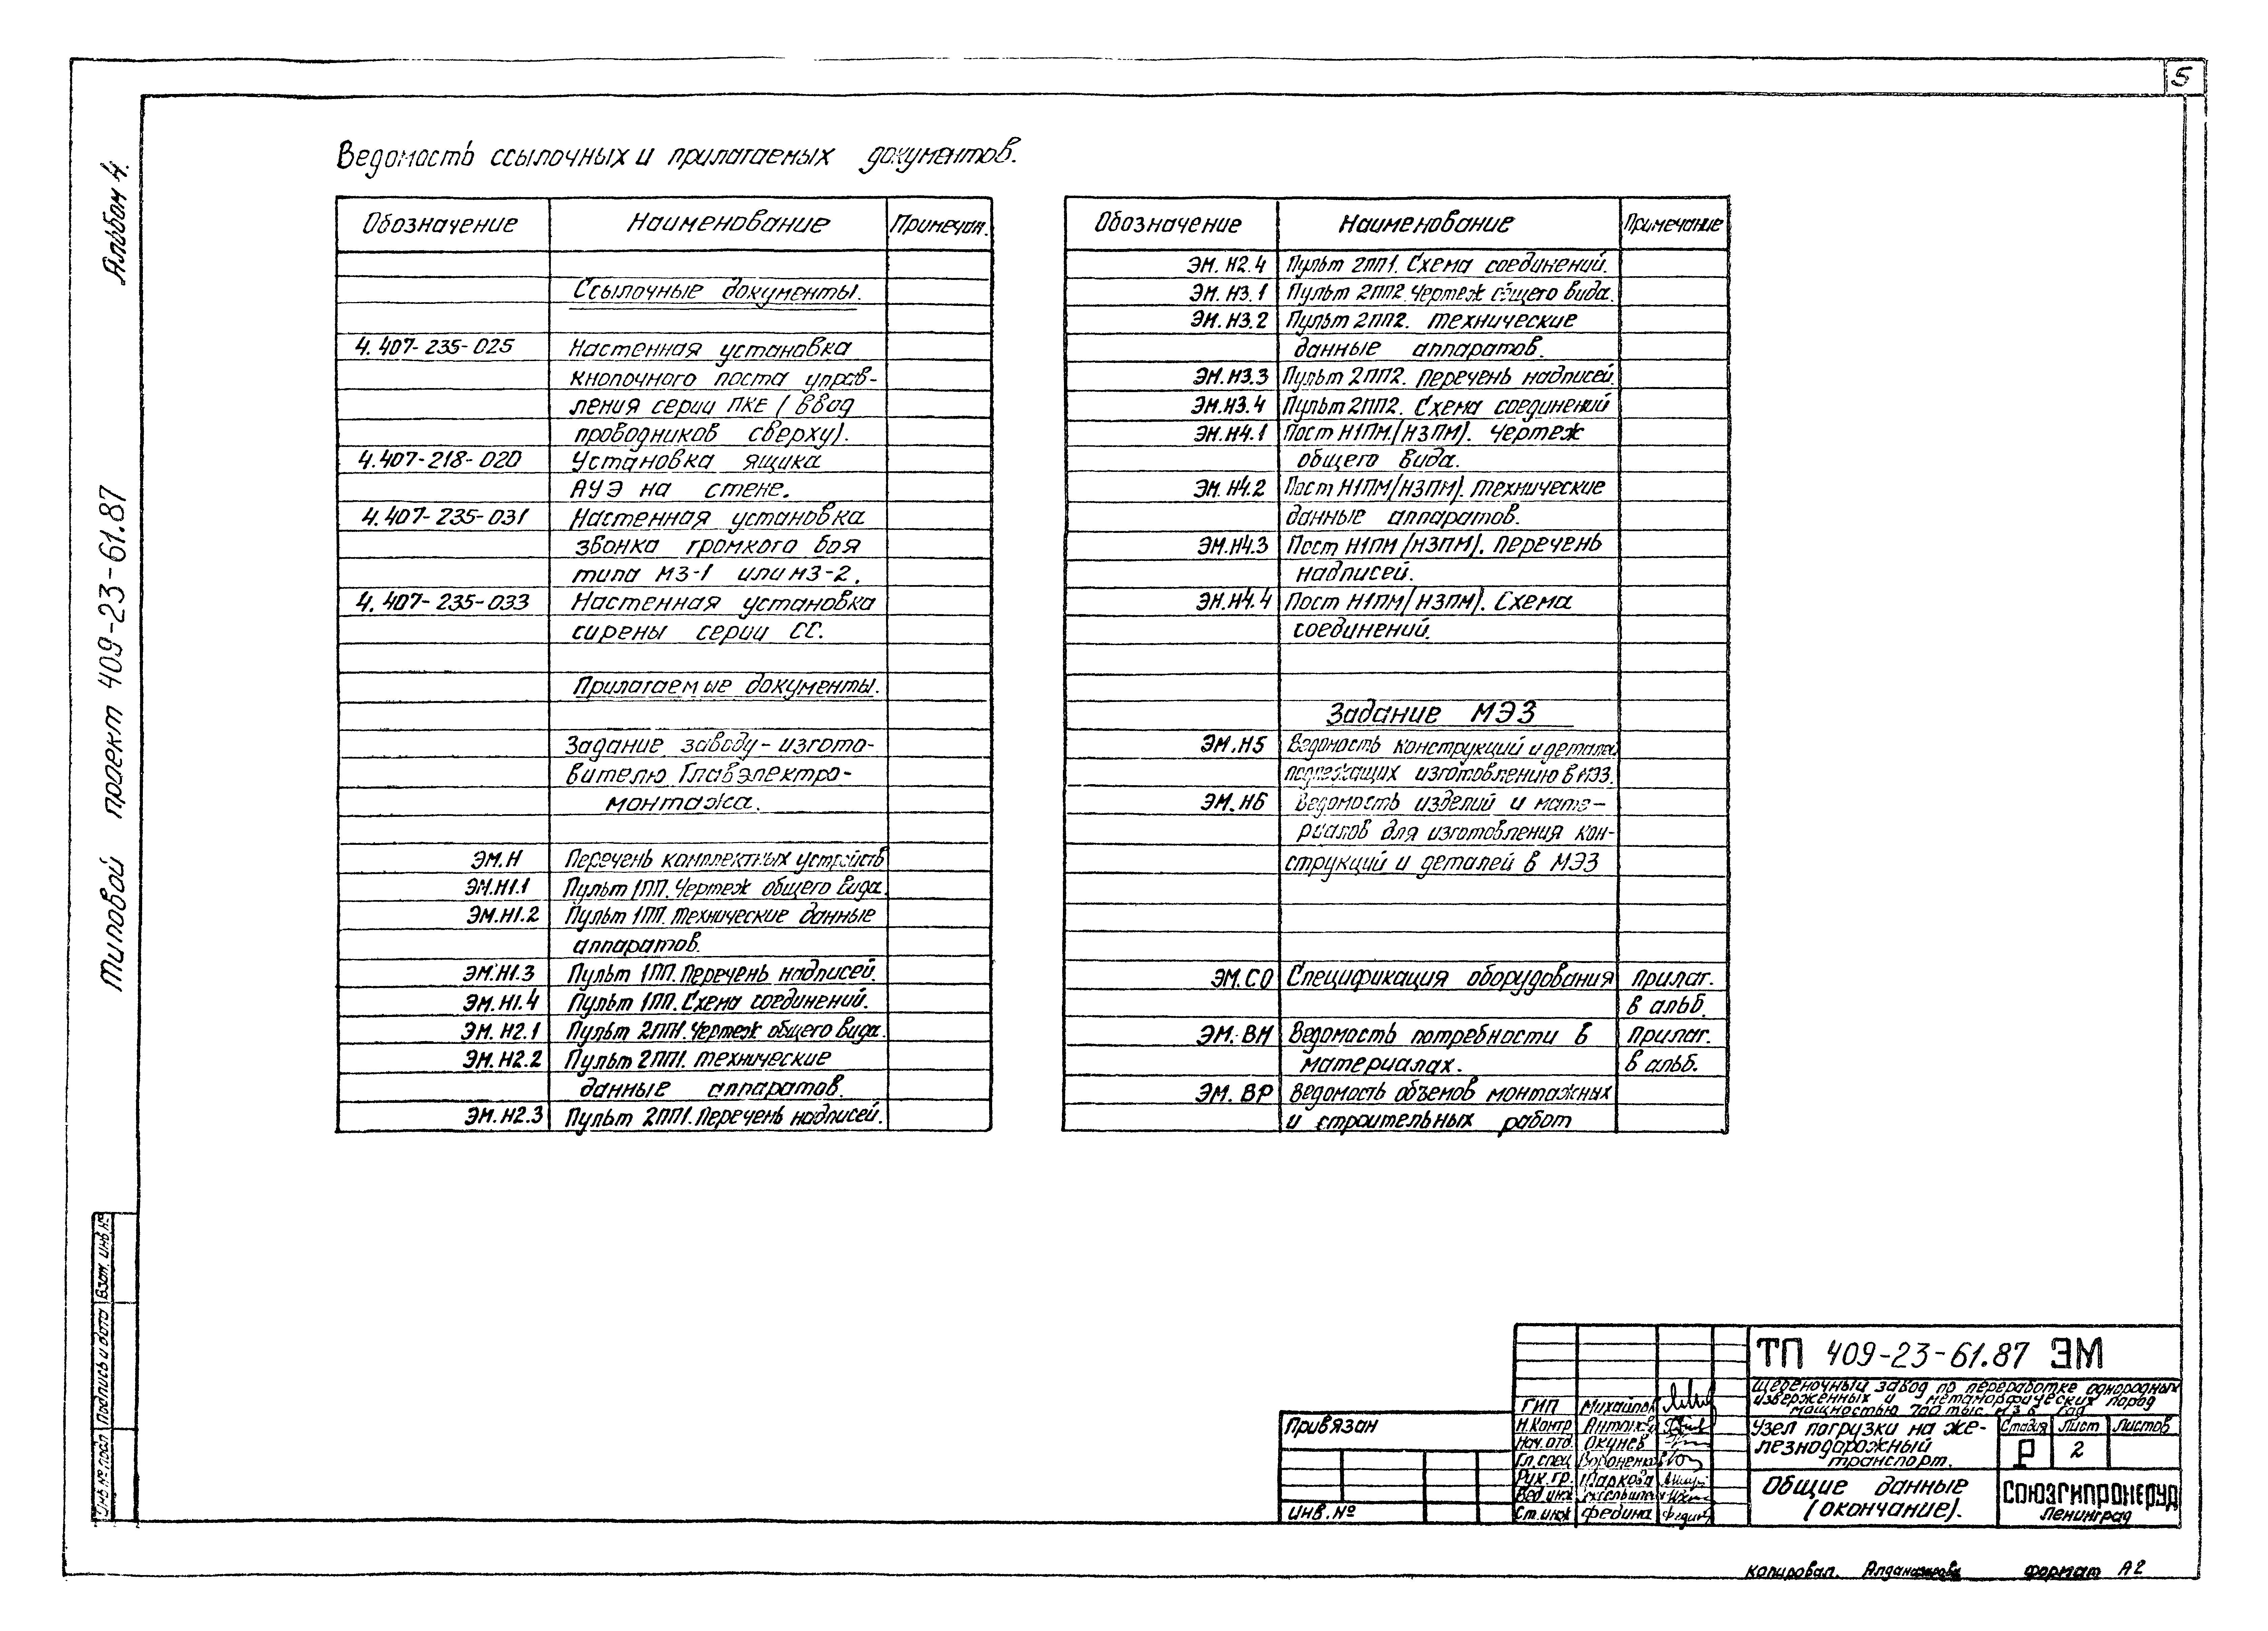 5
Альбом 4.
Типовой проект 409-23-61.87
Ведомость ссылочных и прилагаемых документов.
Обозначение Наименование Примечан.
Ссылочные документы.
4.407-235-025 Настенная установка
кнопочного поста управ-
ления серии ПКЕ (ввод
проводников сверху).
4.407-218-020 Установка ящика
АУЭ на стене.
4.407-235-031 Настенная установка
звонка громкого боя
типа МЗ-1 или МЗ-2.
4.407-235-033 Настенная установка
сирены серии СС.
Прилагаемые документы.
Задание заводу-изгото-
вителю Главэлектро-
монтажа.
ЭМ.Н Перечень комплектных устройств
ЭМ.Н1.1 Пульт 1ПП. Чертеж общего вида.
ЭМ.Н1.2 Пульт 1ПП. Технические данные
аппаратов.
ЭМ.Н1.3 Пульт 1ПП. Перечень надписей.
ЭМ.Н1.4 Пульт 1ПП. Схема соединений.
ЭМ.Н2.1 Пульт 2ПП1. Чертеж общего вида.
ЭМ.Н2.2 Пульт 2ПП1. Технические
данные аппаратов.
ЭМ.Н2.3 Пульт 2ПП1. Перечень надписей.
Обозначение Наименование Примечание
ЭМ.Н2.4 Пульт 2ПП1. Схема соединений.
ЭМ.Н3.1 Пульт 2ПП2. Чертеж общего вида.
ЭМ.Н3.2 Пульт 2ПП2. Технические
данные аппаратов.
ЭМ.Н3.3 Пульт 2ПП2. Перечень надписей.
ЭМ.Н3.4 Пульт 2ПП2. Схема соединений
ЭМ.Н4.1 Пост Н1ПМ (Н3ПМ). Чертеж
общего вида.
ЭМ.Н4.2 Пост Н1ПМ (Н3ПМ). Технические
данные аппаратов.
ЭМ.Н4.3 Пост Н1ПМ (Н3ПМ). Перечень
надписей.
ЭМ.Н4.4 Пост Н1ПМ (Н3ПМ). Схема
соединений.
Задание МЭЗ
ЭМ.Н5 Ведомость конструкций и деталей
подлежащих изготовлению в МЭЗ.
ЭМ.Н6 Ведомость изделий и мате-
риалов для изготовления кон-
струкций и деталей в МЭЗ
ЭМ.СО Спецификация оборудования прилаг.
в альб.
ЭМ.ВМ Ведомость потребности в прилаг.
материалах. в альб.
ЭМ.ВР Ведомость объемов монтажных
и строительных работ
Инв.№ подл. Подпись и дата Взам. инв.№
Привязан
Инв.№
ГИП Михайлов
Н.контр
Нач.отд. Окунев
Гл.спец Вороненко
Рук.гр.
Вед.инж
Ст.инж Федина
ТП 409-23-61.87 ЭМ
Щебеночный завод по переработке однородных
изверженных и метаморфических пород
мощностью 700 тыс. м3 в год
Узел погрузки на же-
лезнодорожный
транспорт.
Стадия Лист Листов
Р 2
Общие данные
(окончание).
СОЮЗГИПРОНЕРУД
Ленинград
Копировал. Формат А2